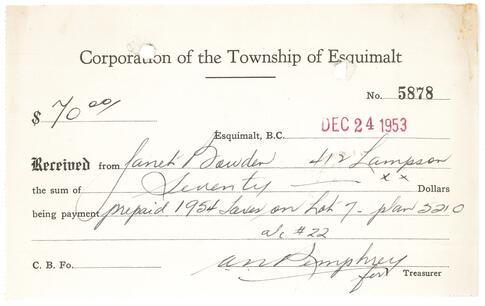 Corporation of the Township of Esquimalt
No. 5878
$ 70.00/
Esquimalt, B.C. DEC 24 1953
Received from Janet Bowden 412 Lampson
the sum of Seventy xx Dollars
being payment prepaid 1954 taxes on Lot 7 - plan 3210
a/c #22
C. B. Fo. A.N. Pumphrey
for Treasurer